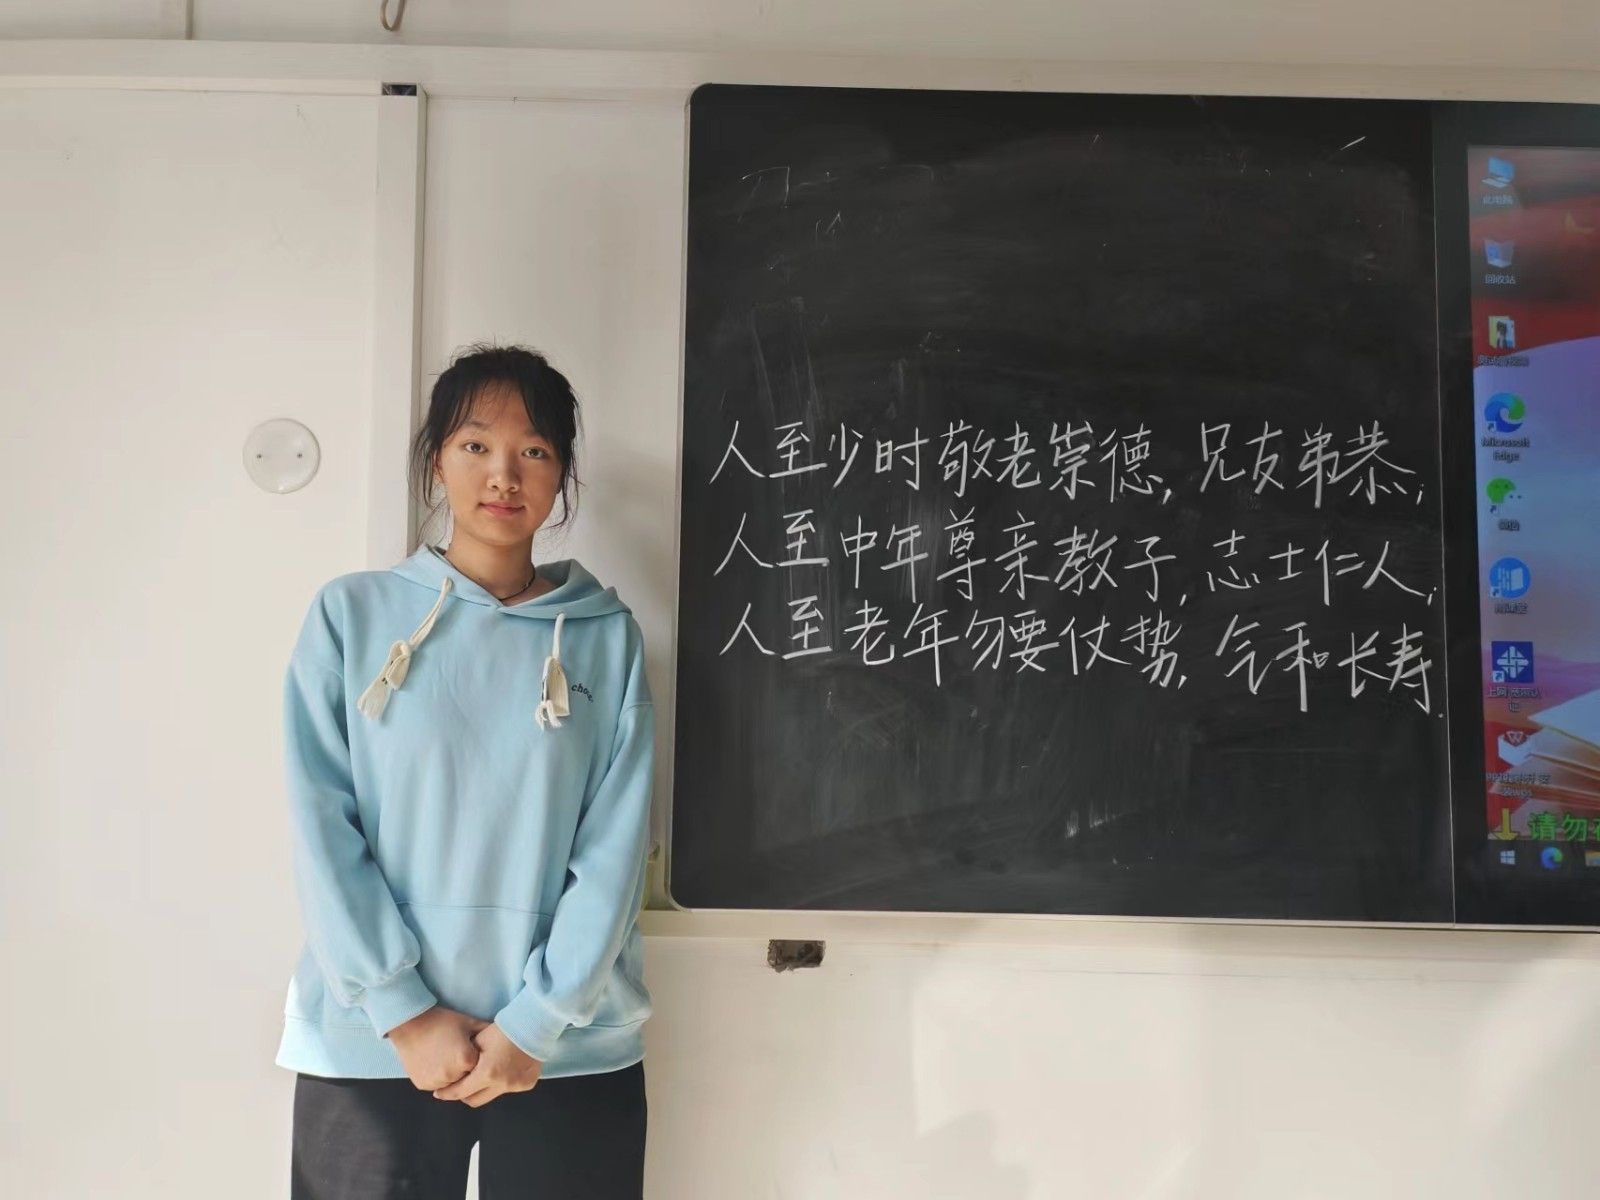 人至少时敬老崇德,兄友弟恭;
人至中年尊亲教子,志士仁人;
人至老年勿要仗势,气和长寿.
此电脑
回收站
Microsoft
Edge
微信
雨课堂
请勿